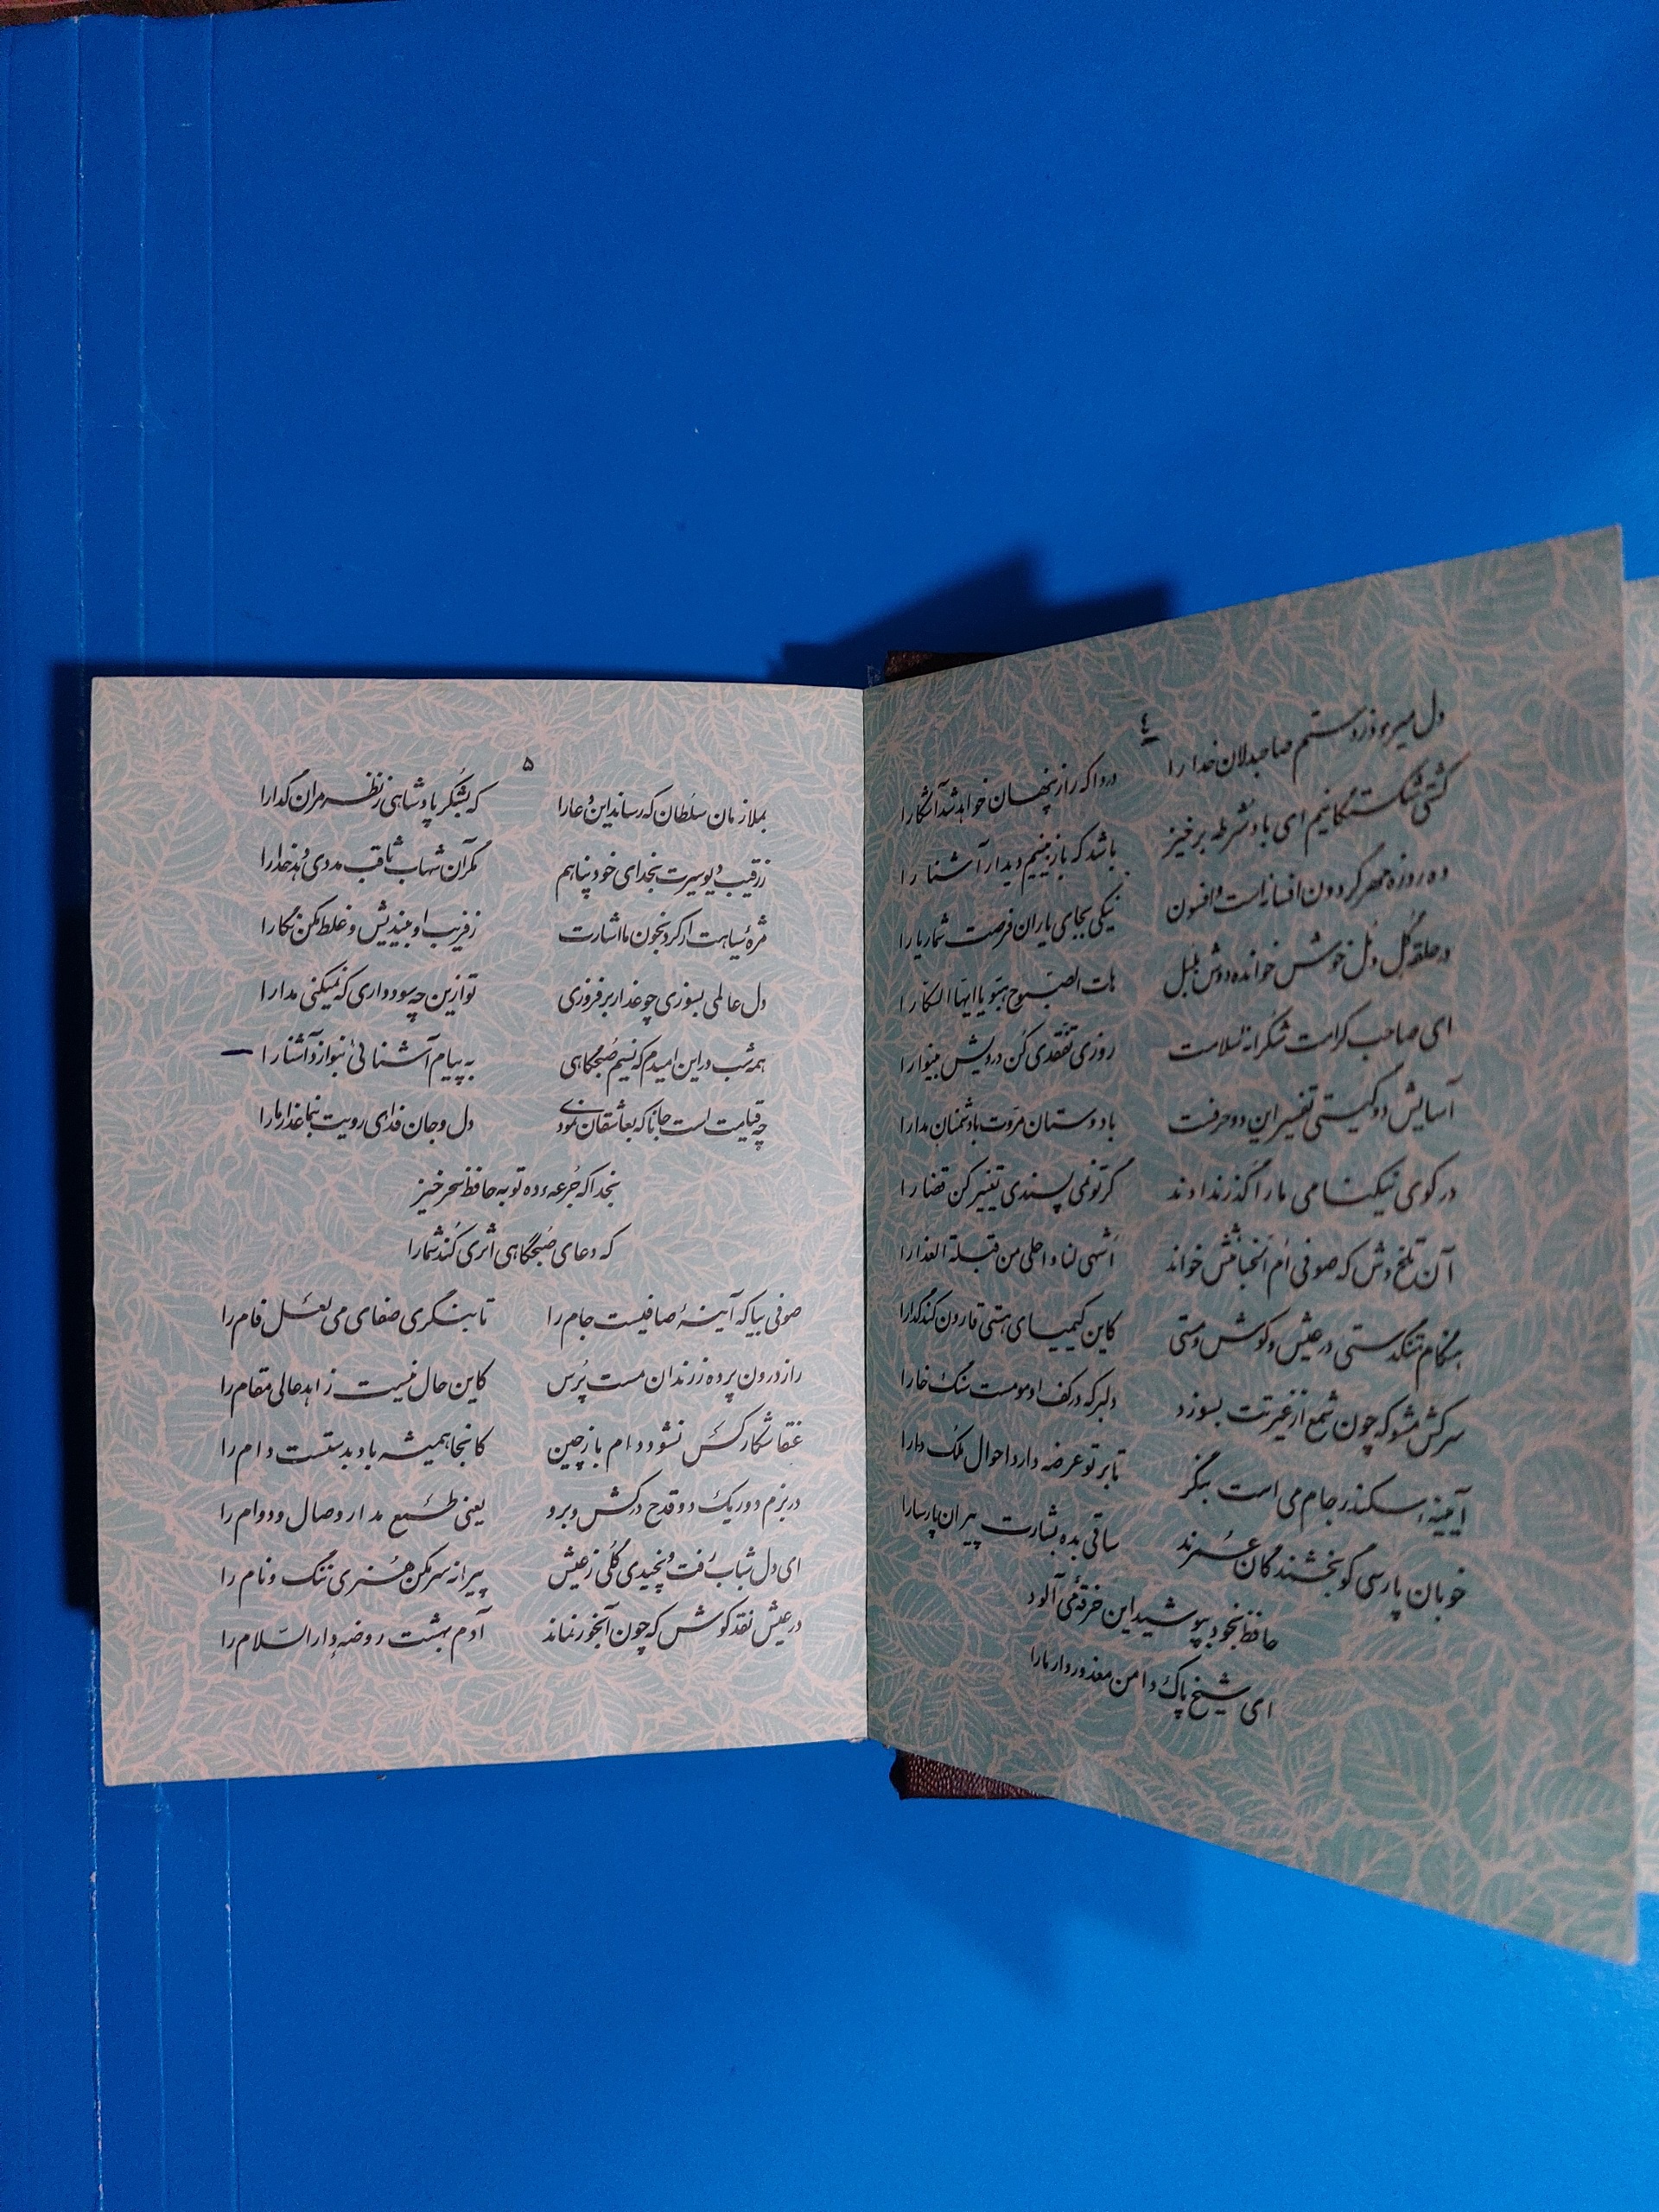 ٤
دل میرود ز دستم صاحبدلان خدا را
دردا که راز پنهان خواهد شد آشکارا
کشتی شکستگانیم ای باد شرطه برخیز
باشد که باز بینیم دیدار آشنا را
ده روزه مهر گردون افسانه است و افسون
نیکی بجای یاران فرصت شمار یارا
در حلقه گل و مل خوش خوانده دوش بلبل
هات الصبوح هبوا یا ایها السکارا
ای صاحب کرامت شکرانه سلامت
روزی تفقدی کن درویش بینوا را
آسایش دو گیتی تفسیر این دو حرفست
با دوستان مروت با دشمنان مدارا
در کوی نیکنامی ما را گذر ندادند
گر تو نمی پسندی تغییر کن قضا را
آن تلخ وش که صوفی ام الخبائثش خواند
اشهی لنا و احلی من قبلة العذارا
هنگام تنگدستی در عیش کوش و مستی
کاین کیمیای هستی قارون کند گدا را
سرکش مشو که چون شمع از غیرتت بسوزد
دلبر که در کف او مومست سنگ خارا
آیینه سکندر جام می است بنگر
تا بر تو عرضه دارد احوال ملک دارا
خوبان پارسی گو بخشندگان عمرند
ساقی بده بشارت پیران پارسا را
حافظ بخود نپوشید این خرقه می آلود
ای شیخ پاک دامن معذور دار ما را
۵
بملازمان سلطان که رساند این دعا را
که بشکر پادشاهی ز نظر مران گدا را
ز رقیب دیو سیرت بخدای خود پناهم
مگر آن شهاب ثاقب مددی دهد خدا را
مژهٔ سیاهت ار کرد بخون ما اشارت
ز فریب او بیندیش و غلط مکن نگارا
دل عالمی بسوزی چو عذار برفروزی
تو ازین چه سود داری که نمیکنی مدارا
همه شب در این امیدم که نسیم صبحگاهی
به پیام آشنائی بنوازد آشنا را
چه قیامت است جانا که بعاشقان نمودی
دل و جان فدای رویت بنما عذار ما را
بخدا که جرعه‌ء ده تو به حافظ سحر خیز
که دعای صبحگاهی اثری کند شما را
صوفی بیا که آینهٔ صافیست جام را
تا بنگری صفای می لعل فام را
راز درون پرده ز رندان مست پرس
کاین حال نیست زاهد عالی مقام را
عنقا شکار کس نشود دام باز چین
کانجا همیشه باد بدستست دام را
در بزم دور یک دو قدح درکش و برو
یعنی طمع مدار وصال و دوام را
ای دل شباب رفت و نچیدی گلی ز عیش
پیرانه سر مکن هنری ننگ و نام را
در عیش نقد کوش که چون آبخور نماند
آدم بهشت روضه دار السلام را